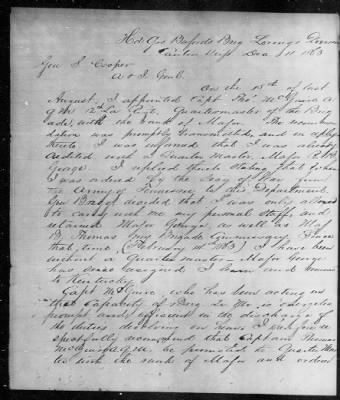 Hd Qrs Bufords Brig Lorings Divn
Canton Miss Dec 11 1863
Gen S Cooper
A & I Genl.
On the 15th of last
August, I appointed Capt Thos McGuire A
Q M 12 La Regt, Quartermaster of the Brig
ade, with the rank of Major. The recommen
dation was promptly transmitted, and in
I was informed that I was already
credited with a Quarter Master, Major
George. I replied thereto stating that when
I was ordered by the Sec of War from
the Army of Tennessee to this Department
Gen Bragg decided that I was only allowed
to carry with me my personal staff, and
retained Major George, as well as Maj
Thomas Brigade Commissary. Since
that time, (February 1863) I have been
without a Quartermaster — Major George
has since resigned I learn and
to Kentucky.
Capt McGuire, who has been acting in
the capacity of Brig Qr Mr, is
prompt and efficient in the discharge of
the duties devolving on him. I therefore re
spectfully recommend that Captain Thomas
McGuire AQM be promoted to Quarter Mas
ter with the rank of Major and ordered